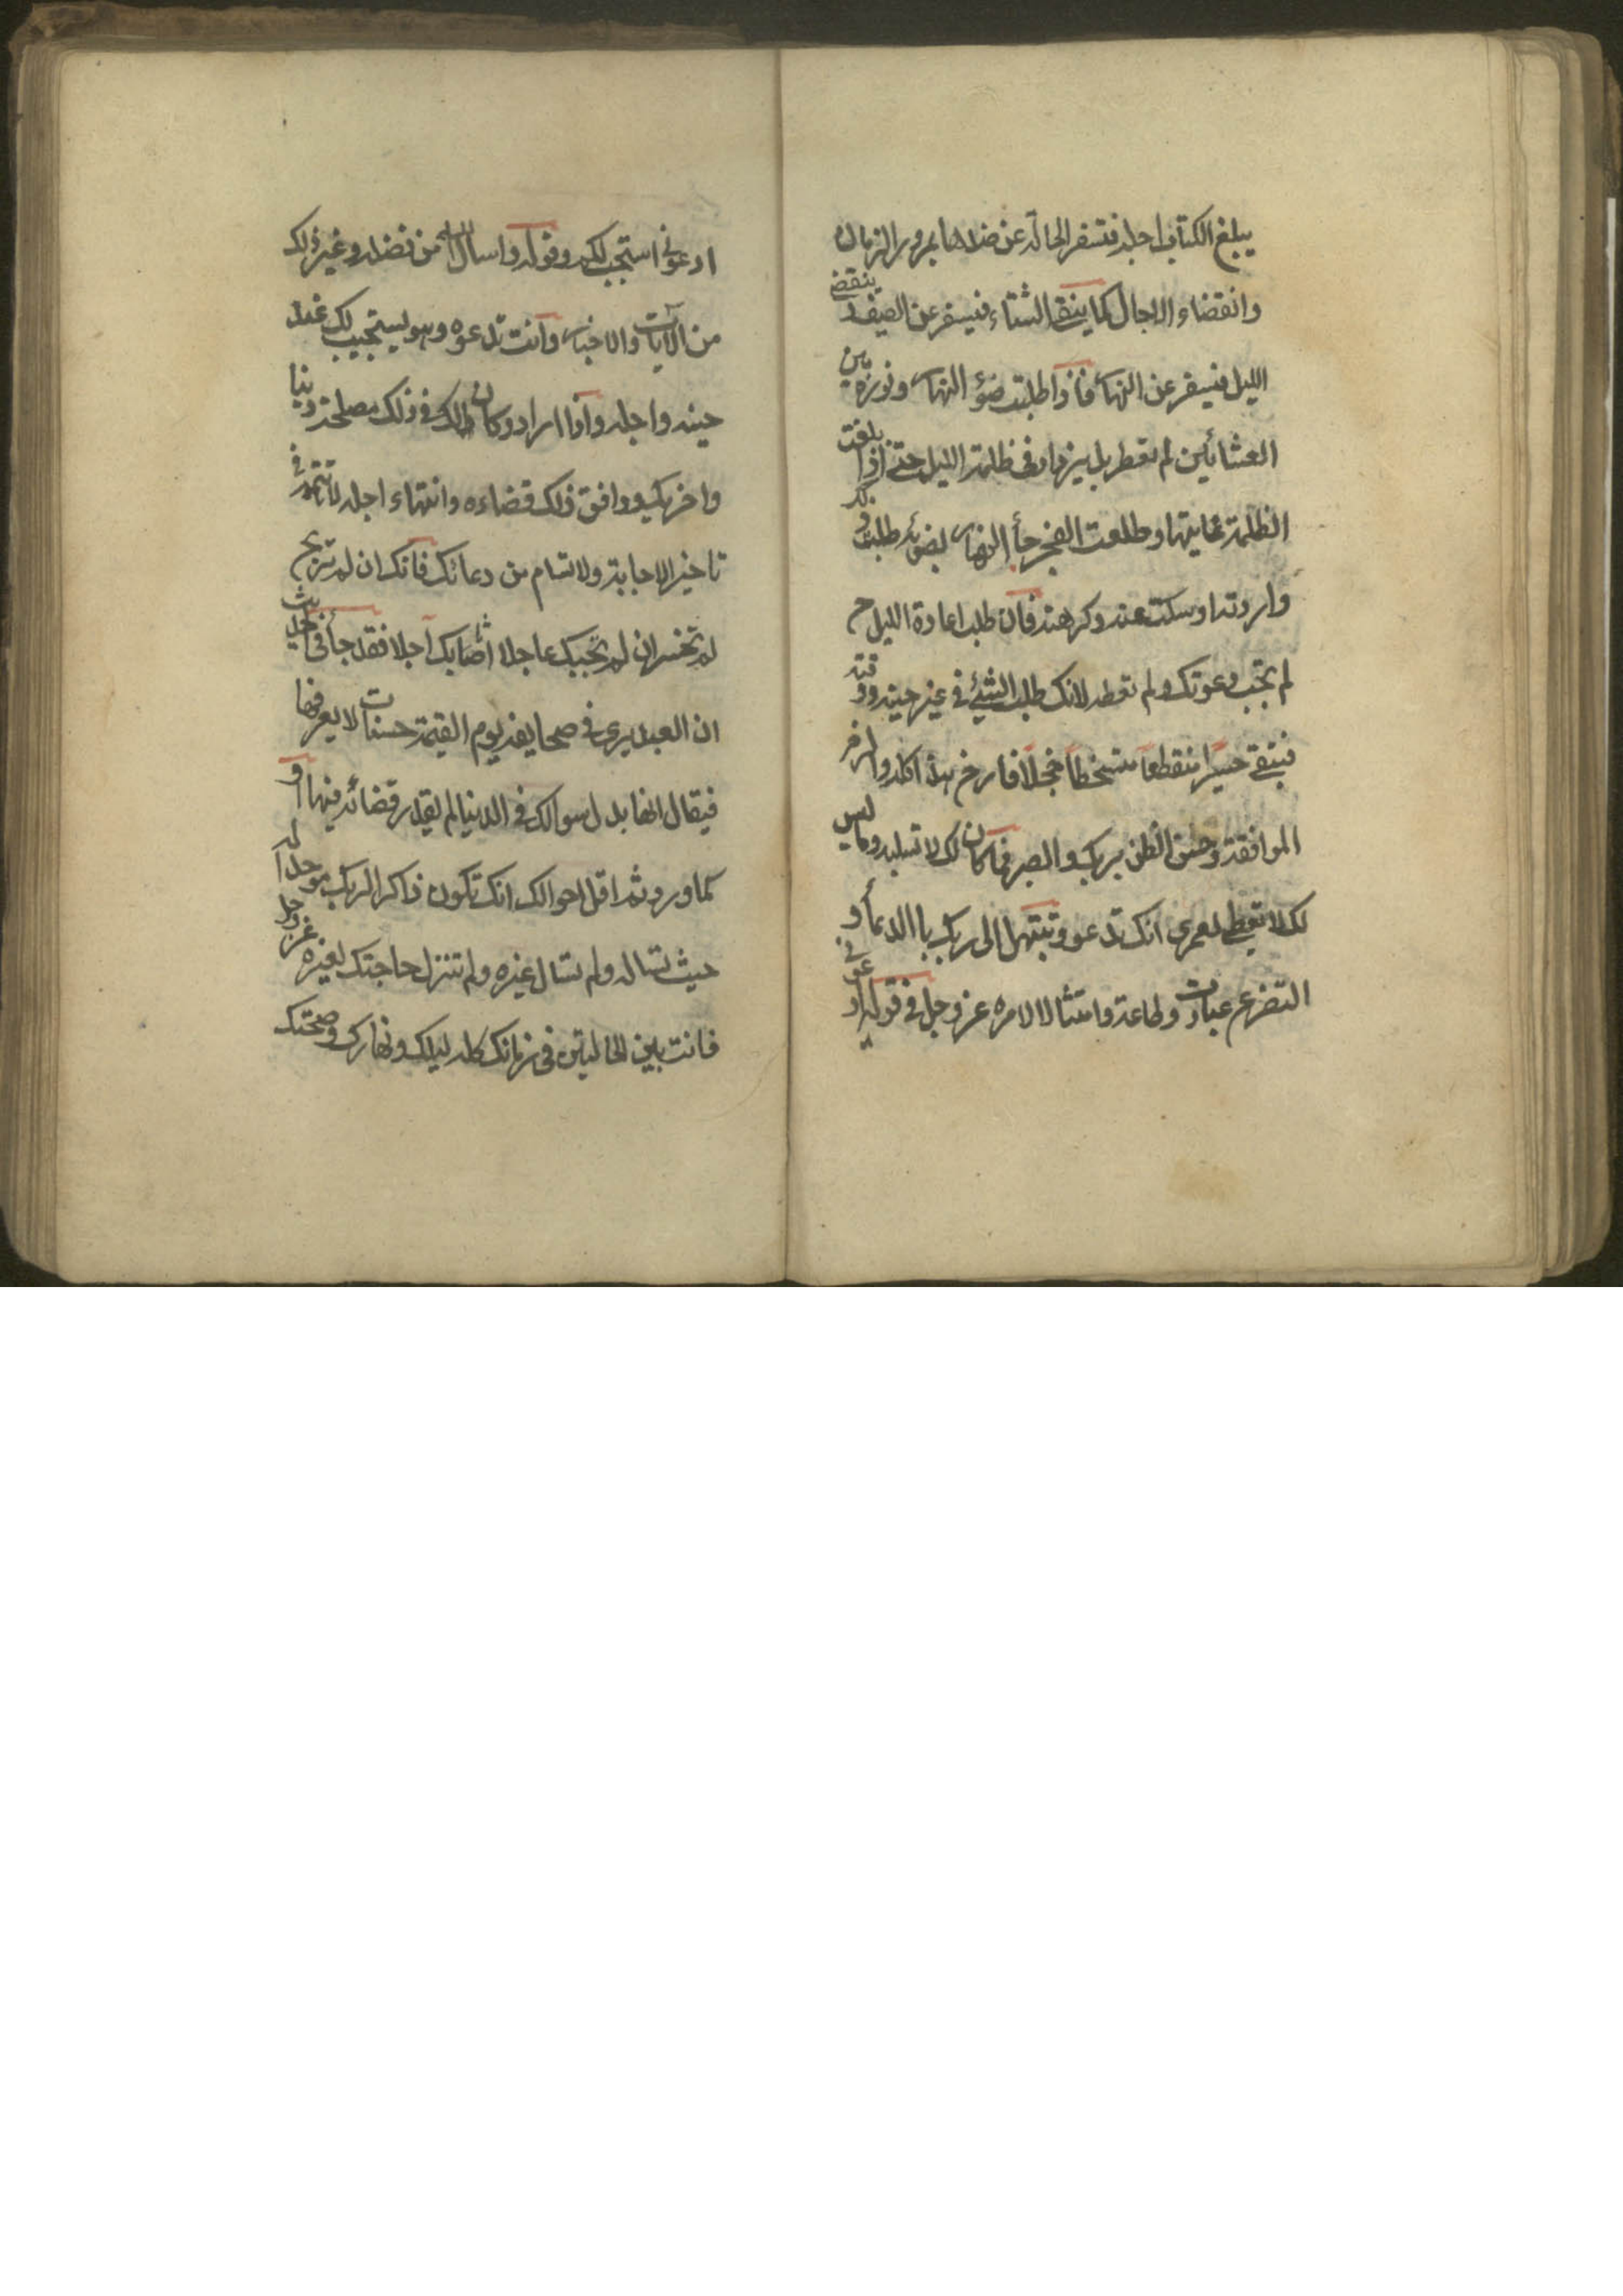 يبلغ الكتاب اجله فتسفر الحالة عن ضدها بمرور الزمان
وانقضاء الاجال كما ينقضي الشتاء فيسفر عن الصيف و ينقضي
الليل فيسفر عن النهار فاذا طلبت ضوء النهار ونوره بين
العشائين لم تعط بل يزداد في ظلمة الليل حتى اذا بلغت
الظلمة غايتها وطلعت الفجر جأ النهار بضوئه طلبت ذلك
واردته او سكت عنه وكرهته فان طلب اعادة الليل ح
لم تجب دعوتك ولم تعطه لانك طلبت الشيئ في غير حينه ووقته
فتبقى حسيرا منقطعا متسخطا خجلا فارخ هذا كله والزم
الموافقة وحسن الظن بربك والصبر فما كان لك لا تسلبه وما ليس
لك لا تعطى لعمري انك تدعو وتبتهل الى ربك باالدعأ و
التضرع عبادت وطاعة وامتثالا لامره عز وجل في قوله ادعوني
ادعوني استجب لكم وقوله واسال الله من فضله وغير ذلك
من الايات والاخبار وانت تدعوه وهو يستجيب لك عند
حينه واجله واذا اراد وكان لك في ذلك مصلحة دنيا
واخريك ووافق ذلك قضاءه وانتهاء اجله لا تتهمه في
تاخير الاجابة ولا تسام من دعائك فانك ان لم تربح
لم تخسر ان لم تجبك عاجلا اثابك اجلا فقد جأ في الحديث
ان العبد يرى في صحايفه يوم القيمة حسنات لا يعرفها
فيقال انها بدل سوالك في الدنيا لم يقدر قضائه فيها او
كما ورد ثم اقل احوالك انك تكون ذاكرا لربك موحدا له
حيث تساله ولم تسال غيره ولم تنزل حاجتك لغيره عز وجل
فانت بين الحالتين في زمانك كله ليلك ونهارك وصحتك